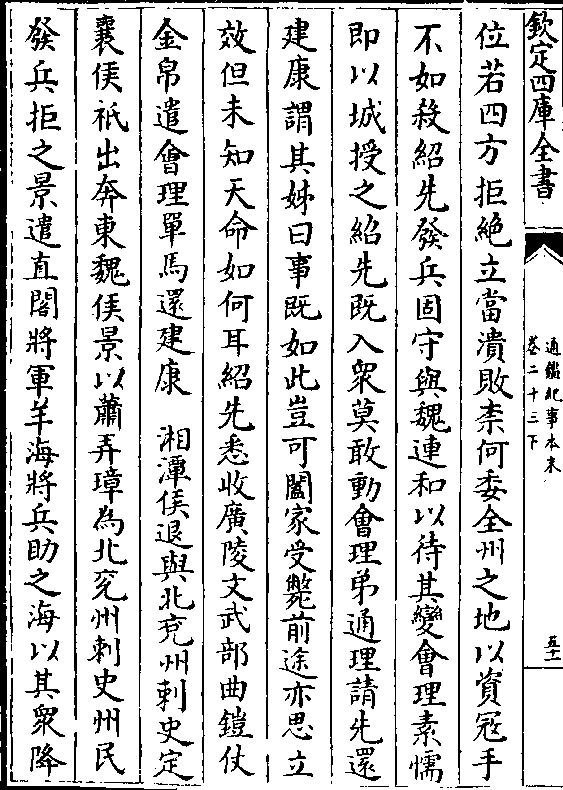 欽定四庫全書
通鑑紀事本末
卷二十三下
五十一
位若四方拒絶立當潰敗柰何委全州之地以資冦手
不如殺紹先發兵固守與魏連和以待其變會理素懦
即以城授之紹先既入衆莫敢動會理弟通理請先還
建康謂其姊曰事既如此豈可闔家受斃前途亦思立
效但未知天命如何耳紹先悉收廣陵文武部曲鎧仗
金帛遣會理單馬還建康　湘潭侯退與北兖州刺史定
襄侯祇出奔東魏侯景以蕭弄璋為北兖州刺史州民
發兵拒之景遣直閤將軍羊海將兵助之海以其衆降